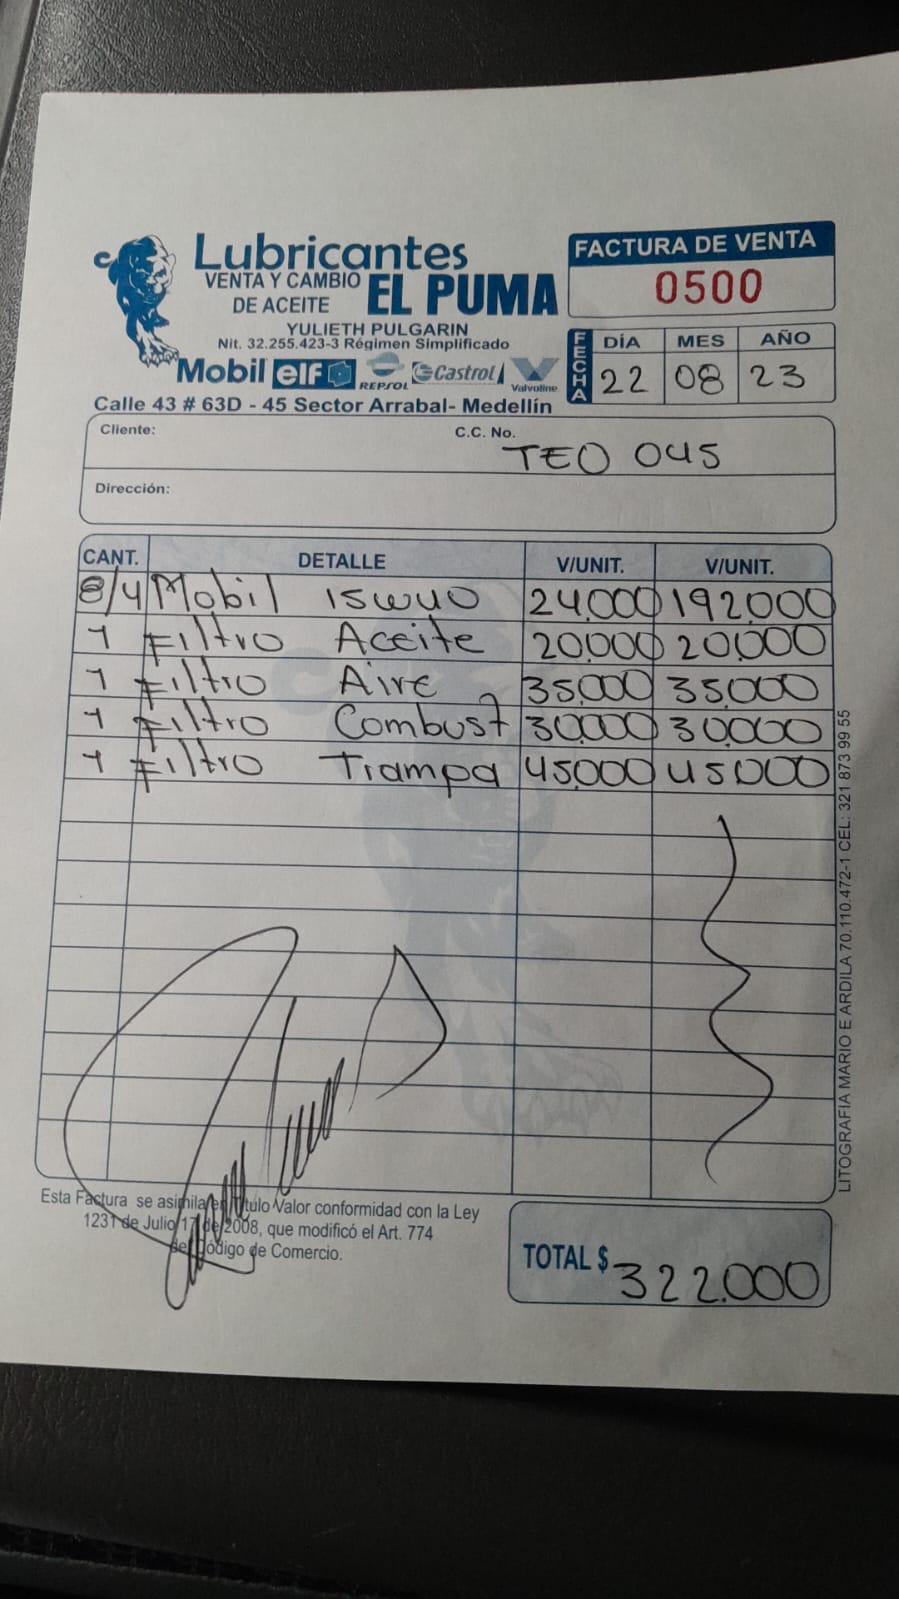 Lubricantes
VENTA Y CAMBIO
DE ACEITE
EL PUMA
YULIETH PULGARIN
Nit. 32.255.423-3 Régimen Simplificado
Mobil elf REPSOL Castrol Valvoline
Calle 43 # 63D - 45 Sector Arrabal- Medellín
FACTURA DE VENTA
0500
FECHA
DÍA MES AÑO
22 08 23
Cliente: C.C. No.
TEO 045
Dirección:
CANT. DETALLE V/UNIT. V/UNIT.
8/4 Mobil 15W40 24.000 192.000
1 Filtro Aceite 20.000 20.000
1 Filtro Aire 35.000 35.000
1 Filtro Combust 30.000 30.000
1 Filtro Trampa 45.000 45.000
Esta Factura se asimila en Título Valor conformidad con la Ley
1231 de Julio 17 de 2008, que modificó el Art. 774
del Código de Comercio.
TOTAL $ 322.000
LITOGRAFIA MARIO E ARDILA 70.110.472-1 CEL: 321 873 99 55